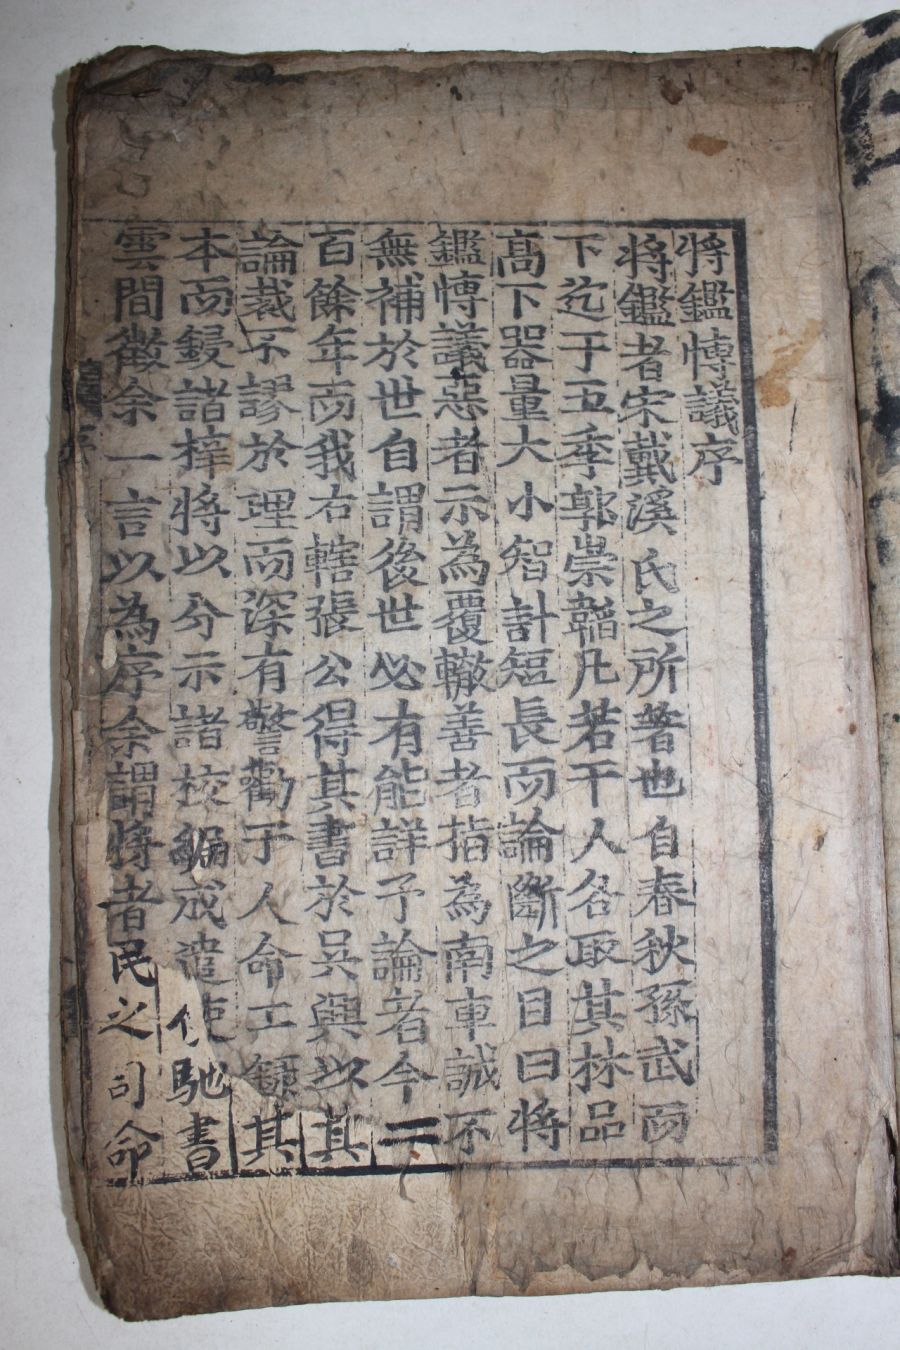 將鑑愽議序
將鑑者宋戴溪氏之所著也自春秋孫武而
下迄于五季郭崇韜凡若干人各取其材品
高下器量大小智計短長而論斷之目曰將
鑑愽議惡者示為覆轍善者指為南車誠不
無補於世自謂後世必有能詳予論者今二
百餘年而我右轄張公得其書於吳興以其
論裁不謬於理而深有警勸于人命工録其
本而鋟諸梓將以分示諸校編戒遣使馳書
雲間徵余一言以為序余謂將者民之司命